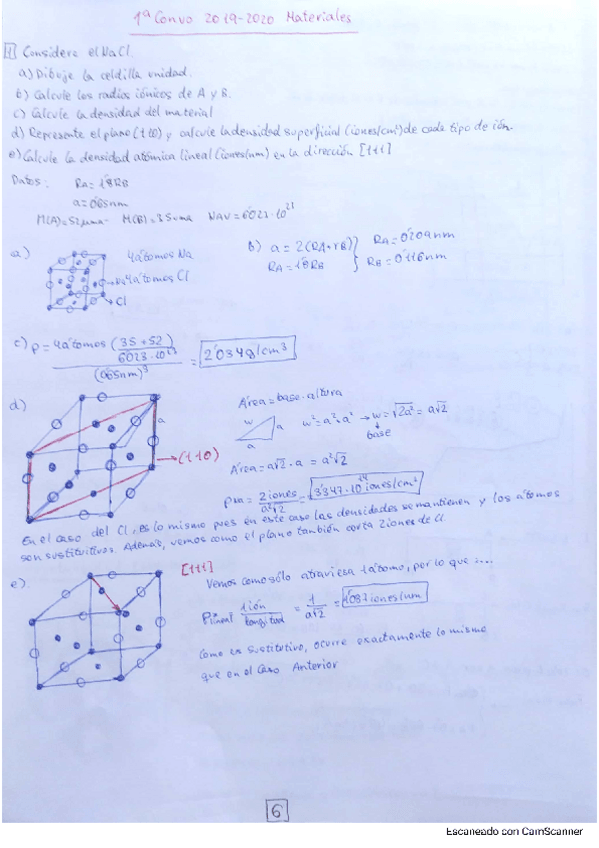 1ª Convo 2019-2020 Materiales
1 Considere el NaCl.
a) Dibuje la celdilla unidad.
b) Calcule los radios iónicos de A y B.
c) Calcule la densidad del material
d) Represente el plano (110) y calcule la densidad superficial (iones/cm²) de cada tipo de ión.
e) Calcule la densidad atómica lineal (iones/nm) en la dirección [111]
Datos: RA = 1'8RB
a = 0'65nm
M(A) = 52 uma- M(B) = 35 uma NAV = 6'023·10²³
a) 4 átomos Na
4 átomos Cl
Na
Cl
b) a = 2(RA+rB) } RA = 0'209nm
RA = 1'8RB } RB = 0'116nm
c) ρ = 4 átomos (35+52 / 6'023·10²³) / (0'65nm)³ = 2'034g/cm³
d) Área = base·altura
w a a w² = a²+a² → w = √2a² = a√2
base
a
→ (110)
Área = a√2 · a = a²√2
= 2 iones / a²√2 = 3'347·10¹⁴ iones/cm²
En el caso del Cl, es lo mismo pues en este caso las densidades se mantienen y los átomos
son sustitutivos. Además, vemos como el plano también corta 2 iones de Cl.
e) [111]
Vemos como sólo atraviesa 1 átomo, por lo que ....
ρlineal = 1 ión / longitud = 1 / a√2 = 1'087 iones/nm
Como es sustitutivo, ocurre exactamente lo mismo
que en el Caso Anterior
6
Escaneado con CamScanner